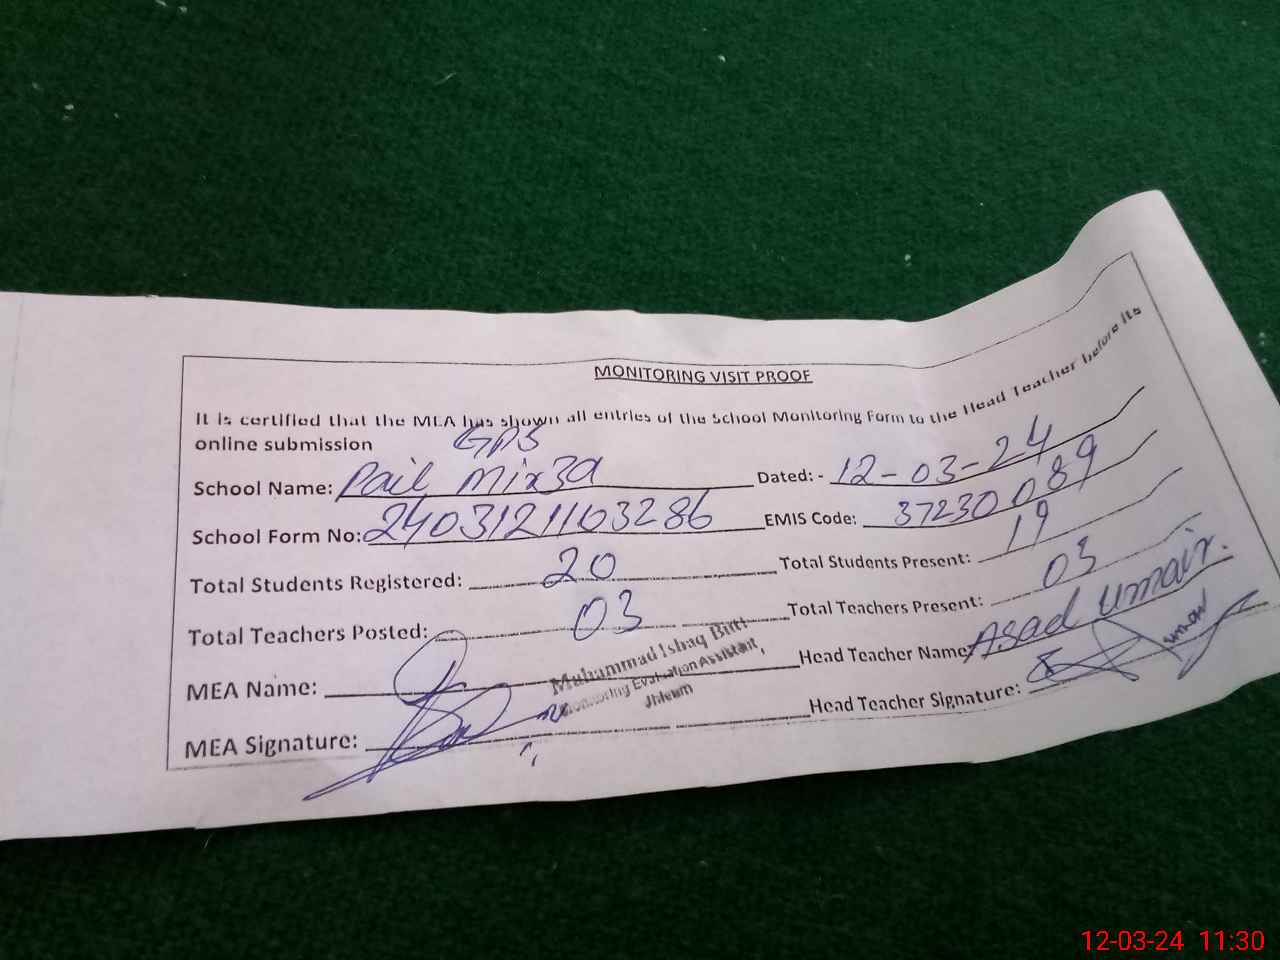 MONITORING VISIT PROOF
It is certified that the MEA has shown all entries of the School Monitoring Form to the Head Teacher before its
online submission
GPS
School Name: Pail Mix3a Dated: - 12-03-24
School Form No: 2403121103286 EMIS Code: 37230089
Total Students Registered: 20 Total Students Present: 19
Total Teachers Posted: 03 Total Teachers Present: 03
MEA Name: Muhammad Ishaq Butt Head Teacher Name: Asad Umair.
Monitoring Evaluation Assistant,
Jhleum
MEA Signature: Head Teacher Signature:
12-03-24 11:30